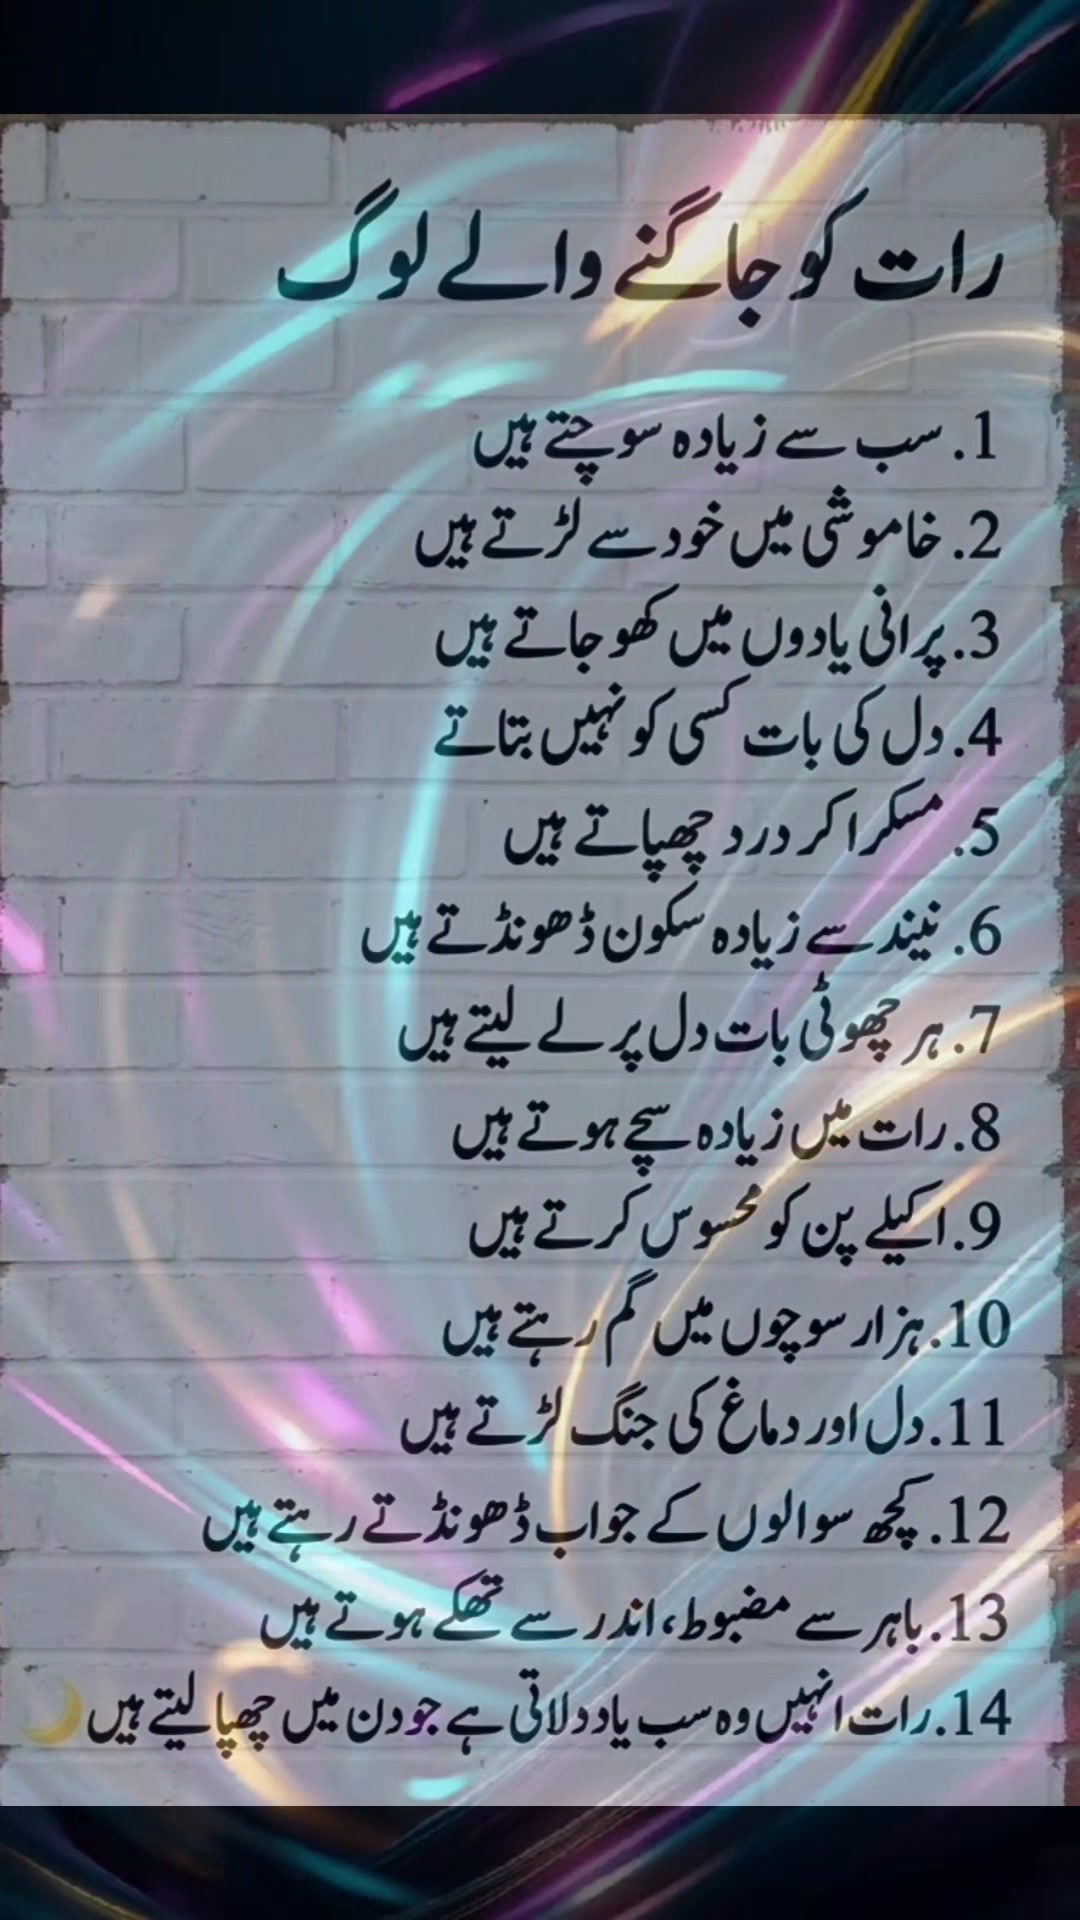 رات کو جاگنے والے لوگ
1. سب سے زیادہ سوچتے ہیں
2. خاموشی میں خود سے لڑتے ہیں
3. پرانی یادوں میں کھو جاتے ہیں
4. دل کی بات کسی کو نہیں بتاتے
5. مسکرا کر درد چھپاتے ہیں
6. نیند سے زیادہ سکون ڈھونڈتے ہیں
7. ہر چھوٹی بات دل پر لے لیتے ہیں
8. رات میں زیادہ سچے ہوتے ہیں
9. اکیلے پن کو محسوس کرتے ہیں
10. ہزار سوچوں میں گم رہتے ہیں
11. دل اور دماغ کی جنگ لڑتے ہیں
12. کچھ سوالوں کے جواب ڈھونڈتے رہتے ہیں
13. باہر سے مضبوط، اندر سے تھکے ہوتے ہیں
14. رات انہیں وہ سب یاد دلاتی ہے جو دن میں چھپا لیتے ہیں 🌙